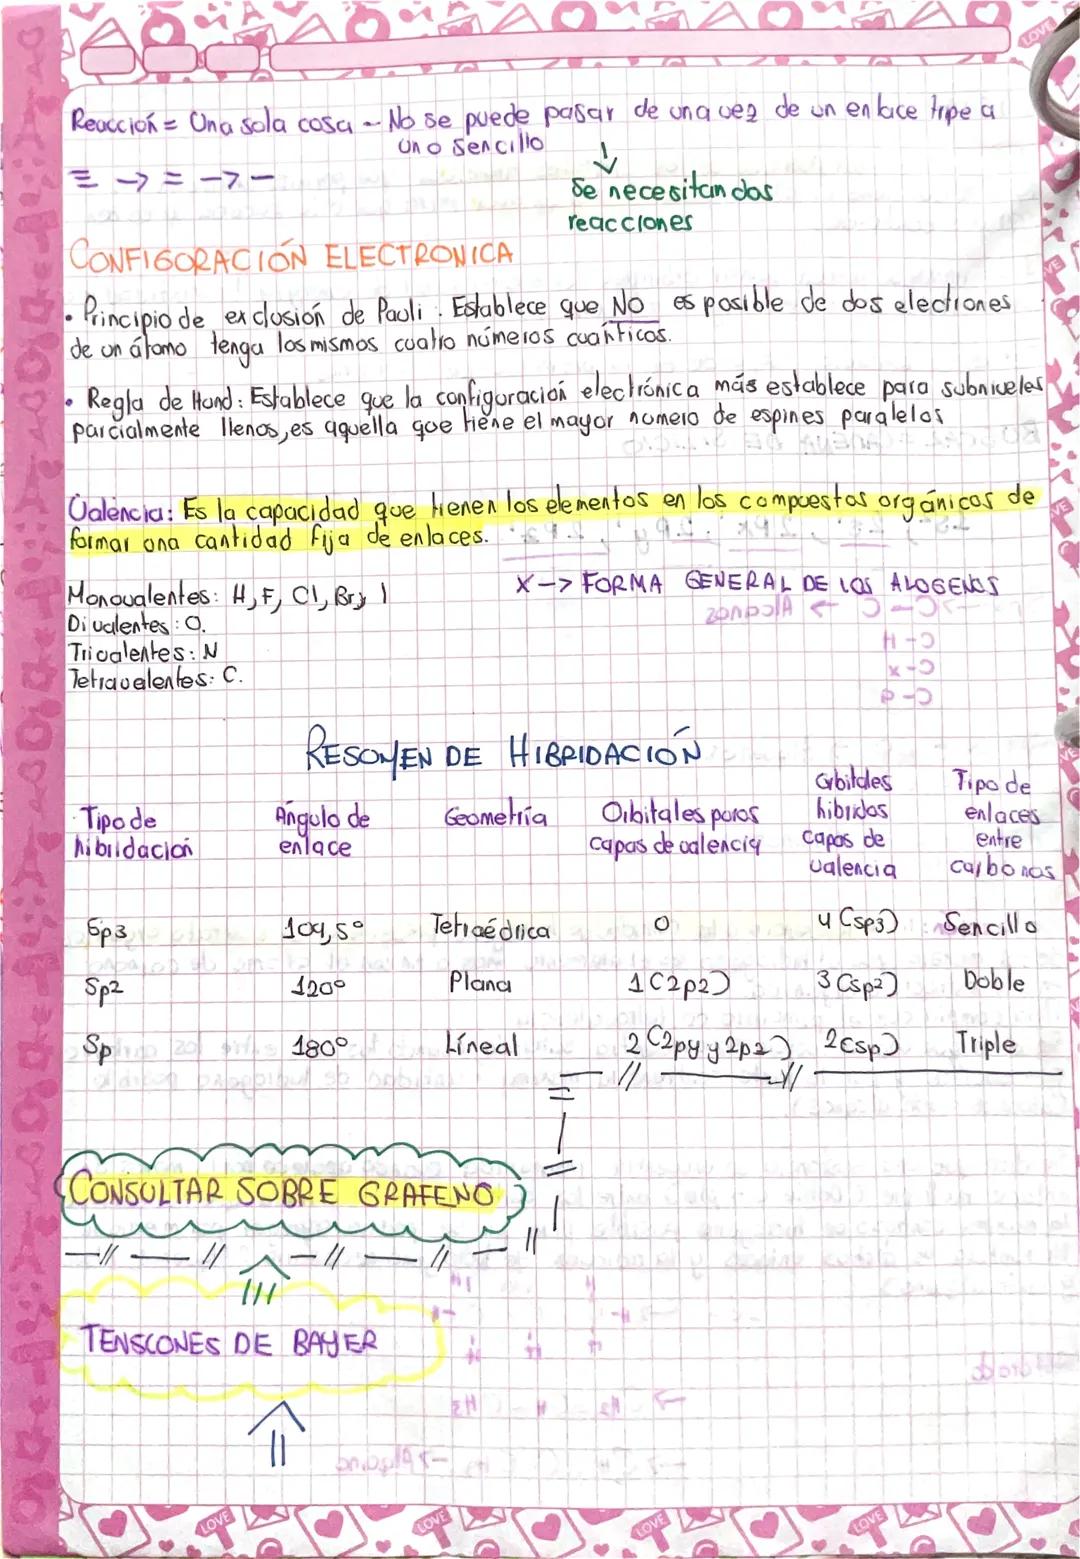 Reacción = Una sola cosa - No se puede pasar de una vez de un enlace tripe a
uno sencillo
≡ -> = -> -
↓
Se necesitan dos
reacciones
CONFIGORACIÓN ELECTRONICA
• Principio de exclusión de Paoli: Establece que NO es posible de dos electrones
de un átomo tenga los mismos cuatro números cuánticos.
• Regla de Hund: Establece que la configuración electrónica más establece para subniveles
parcialmente llenos, es aquella que tiene el mayor numero de espines paralelos
Valencia: Es la capacidad que tienen los elementos en los compuestos orgánicos de
formar una cantidad fija de enlaces.
Monovalentes: H, F, Cl, Br, I
X -> FORMA GENERAL DE LOS ALOGENOS
Divalentes: O.
Trivalentes: N
Tetravalentes: C.
RESUMEN DE HIBRIDACIÓN
Tipo de hibridación
Ángulo de enlace
Geometría
Orbitales puros capas de valencia
Orbitales hibridos capas de valencia
Tipo de enlaces entre carbonos
Sp3 109,5° Tetraédrica 0 4 (sp3) Sencillo
Sp2 120° Plana 1 (2p2) 3 (sp2) Doble
Sp 180° Líneal 2 (2py y 2pz) 2 (sp) Triple
CONSULTAR SOBRE GRAFENO
TENSIONES DE BAYER